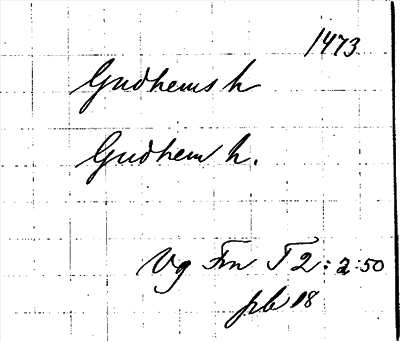 1473
Gudhems h
Gudhem h.
Vg Fm T 2:2:50
pb 18